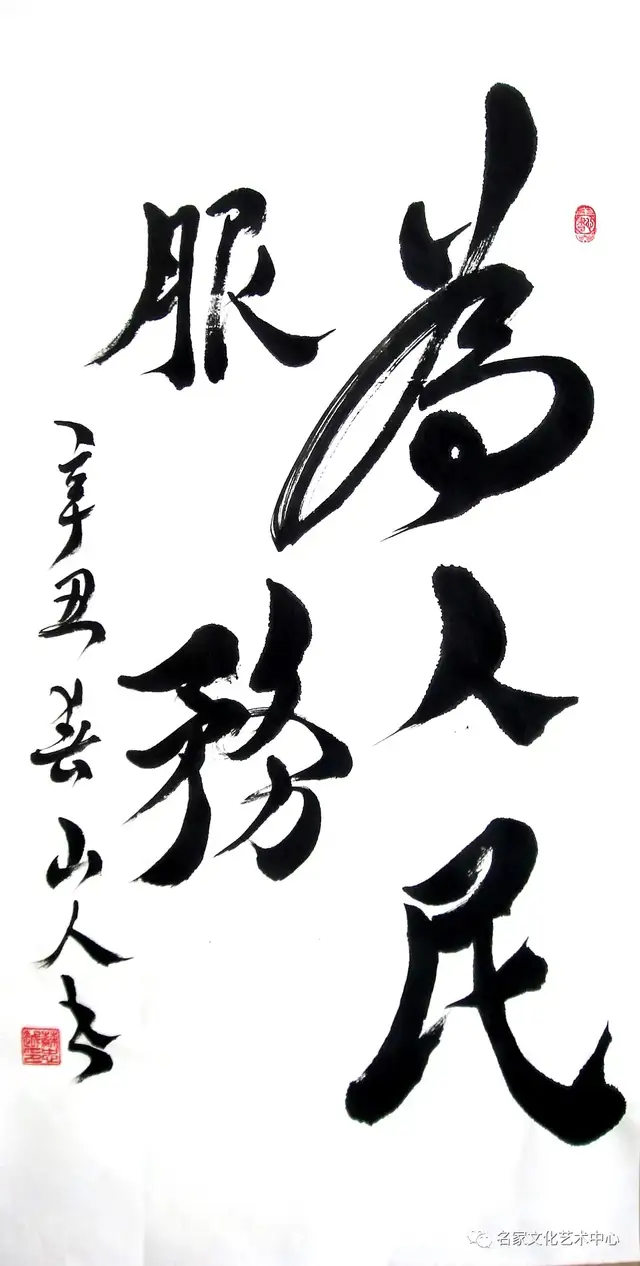 為人民
服務
辛丑春山人书
名家文化艺术中心